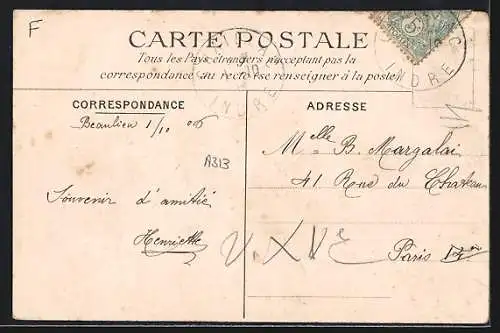 F
CARTE POSTALE
Tous les Pays étrangers n'acceptant pas la
correspondance au recto se renseigner à la poste
CORRESPONDANCE
Beaulieu 1/10 06
A313
Souvenir d'amitié
Henriette
ADRESSE
Melle B. Margalai
41 Rue du Chateau
Paris
INDRE
INDRE
5